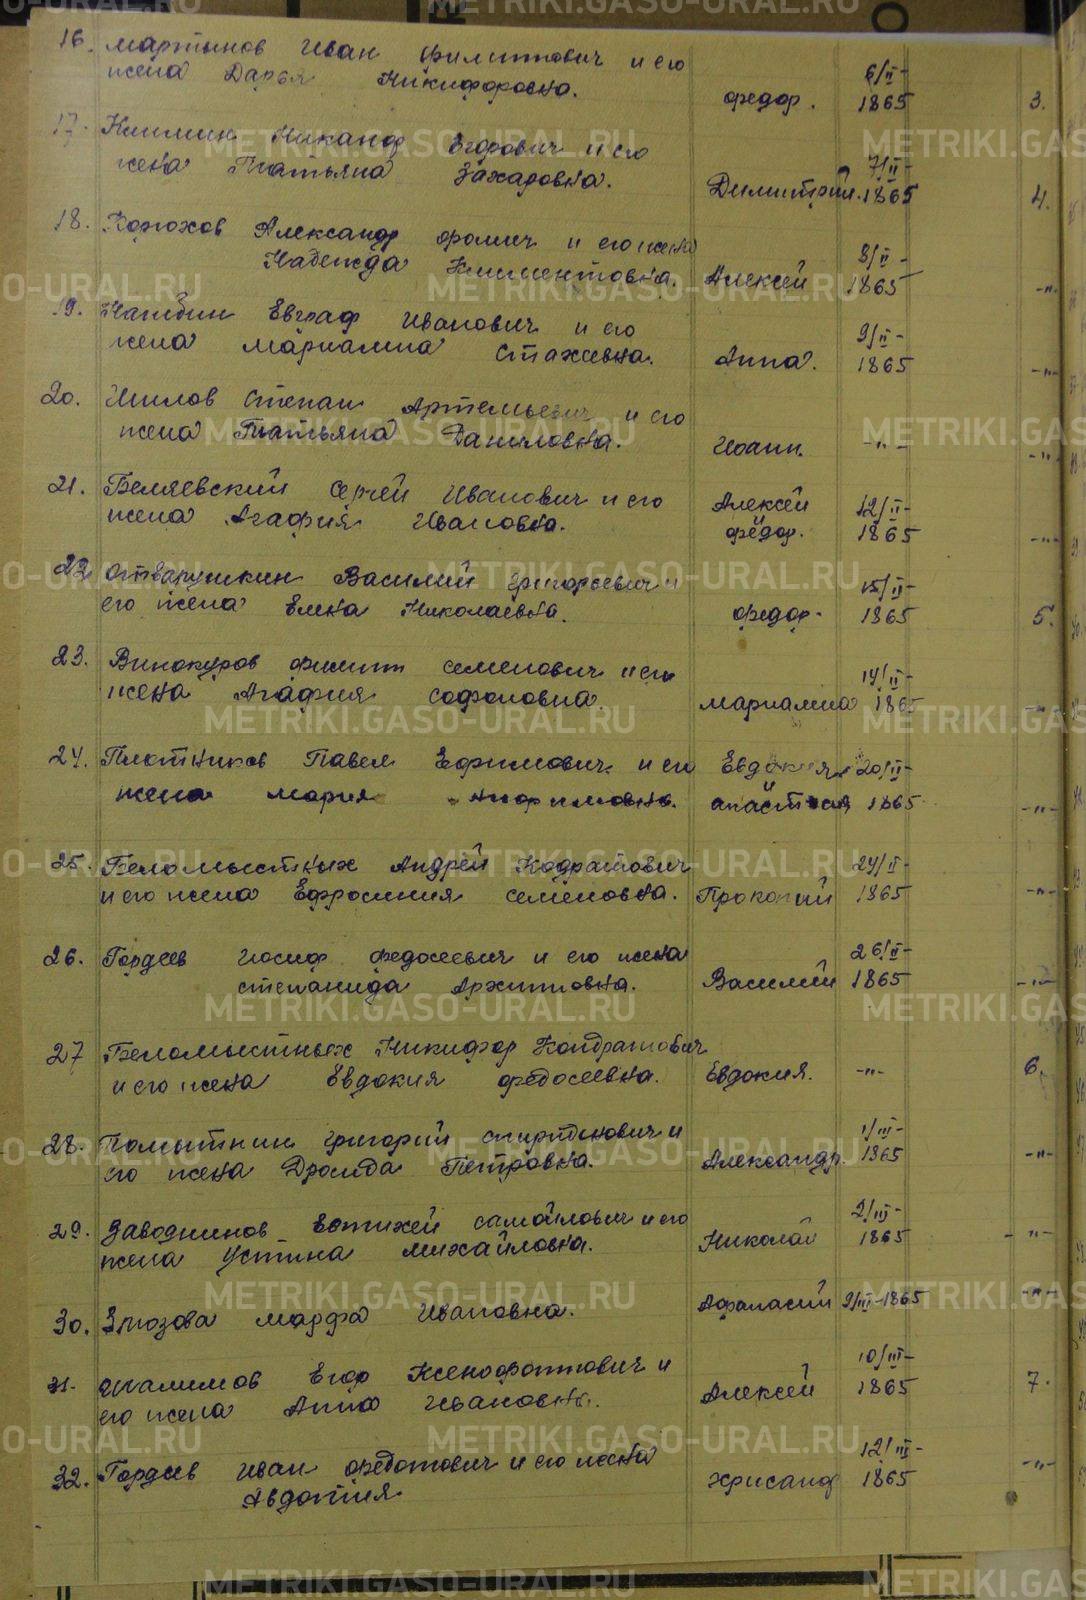 16. Мартынов Иван Филиппович и его
жена Дарья Никифоровна. Федор. 6/II- 1865 3.
17. Климин Никанор Егорович и его
жена Татьяна Захаровна. Димитрий. 7/II- 1865 4.
18. Корюхов Александр Фомич и его жена
Надежда Климентовна. Алексей 8/II- 1865 -"-
19. Нагибин Евграф Иванович и его
жена Марианна Стахиевна. Анна. 9/II- 1865 -"-
20. Шилов Степан Артемьевич и его
жена Татьяна Даниловна. Иоанн. -"- -"-
21. Беляевский Сергей Иванович и его
жена Агафия Ивановна. Алексей и Фёдор. 12/II- 1865 -"-
22. Отварушкин Василий Григорьевич и
его жена Елена Николаевна. Федор- 15/II- 1865 5.
23. Винокуров Филипп Семенович и его
жена Агафия Софоновна. Марианна 14/II- 1865 -"-
24. Плотников Павел Ефимович и его
жена Мария Анфимовна. Евдокия и Анастасия 20/II- 1865 -"-
25. Беломыстных Андрей Кодратович
и его жена Ефросиния Семёновна. Прокопий 24/II- 1865 -"-
26. Гордеев Иосиф Федосеевич и его жена
Степанида Архиповна. Василий 26/II- 1865 -"-
27 Беломыстных Никифор Кондратович
и его жена Евдокия Федосеевна. Евдокия. -"- 6.
28. Григорий Спиридонович и
его жена Петровна. Александр. 1/III- 1865 -"-
29. Заводчиков Евтихей Самойлович и его
жена Устина Михайловна. Николай 2/III- 1865 -"-
30. Зюзова Марфа Ивановна. Афанасий 9/III-1865 -"-
31. Егор Ксенофонтович и
его жена Анна Ивановна. Алексей 10/III- 1865 7.
32. Гордеев Иван Федотович и его жена
Авдотия Хрисанф 12/III- 1865 -"-
METRIKI.GASO-URAL.RU